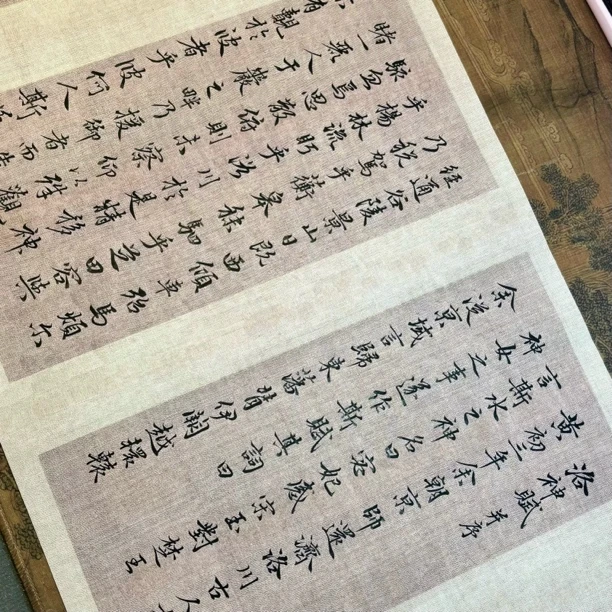 洛神賦并序
黄初三年余朝京師還濟洛川古人
言斯水之神名曰宓妃感宋玉對楚王
神女之事遂作斯賦其詞曰
余從京域言歸東藩背伊闕越轘轅
經通谷陵景山日既西傾車殆馬煩尔
乃稅駕乎蘅皋秣駟乎芝田容與
乎楊林流眄乎洛川於是精移神
駭忽焉思散俯則未察仰以殊觀
睹一麗人于巖之畔乃援御者而告
有覿於彼者乎彼何人斯